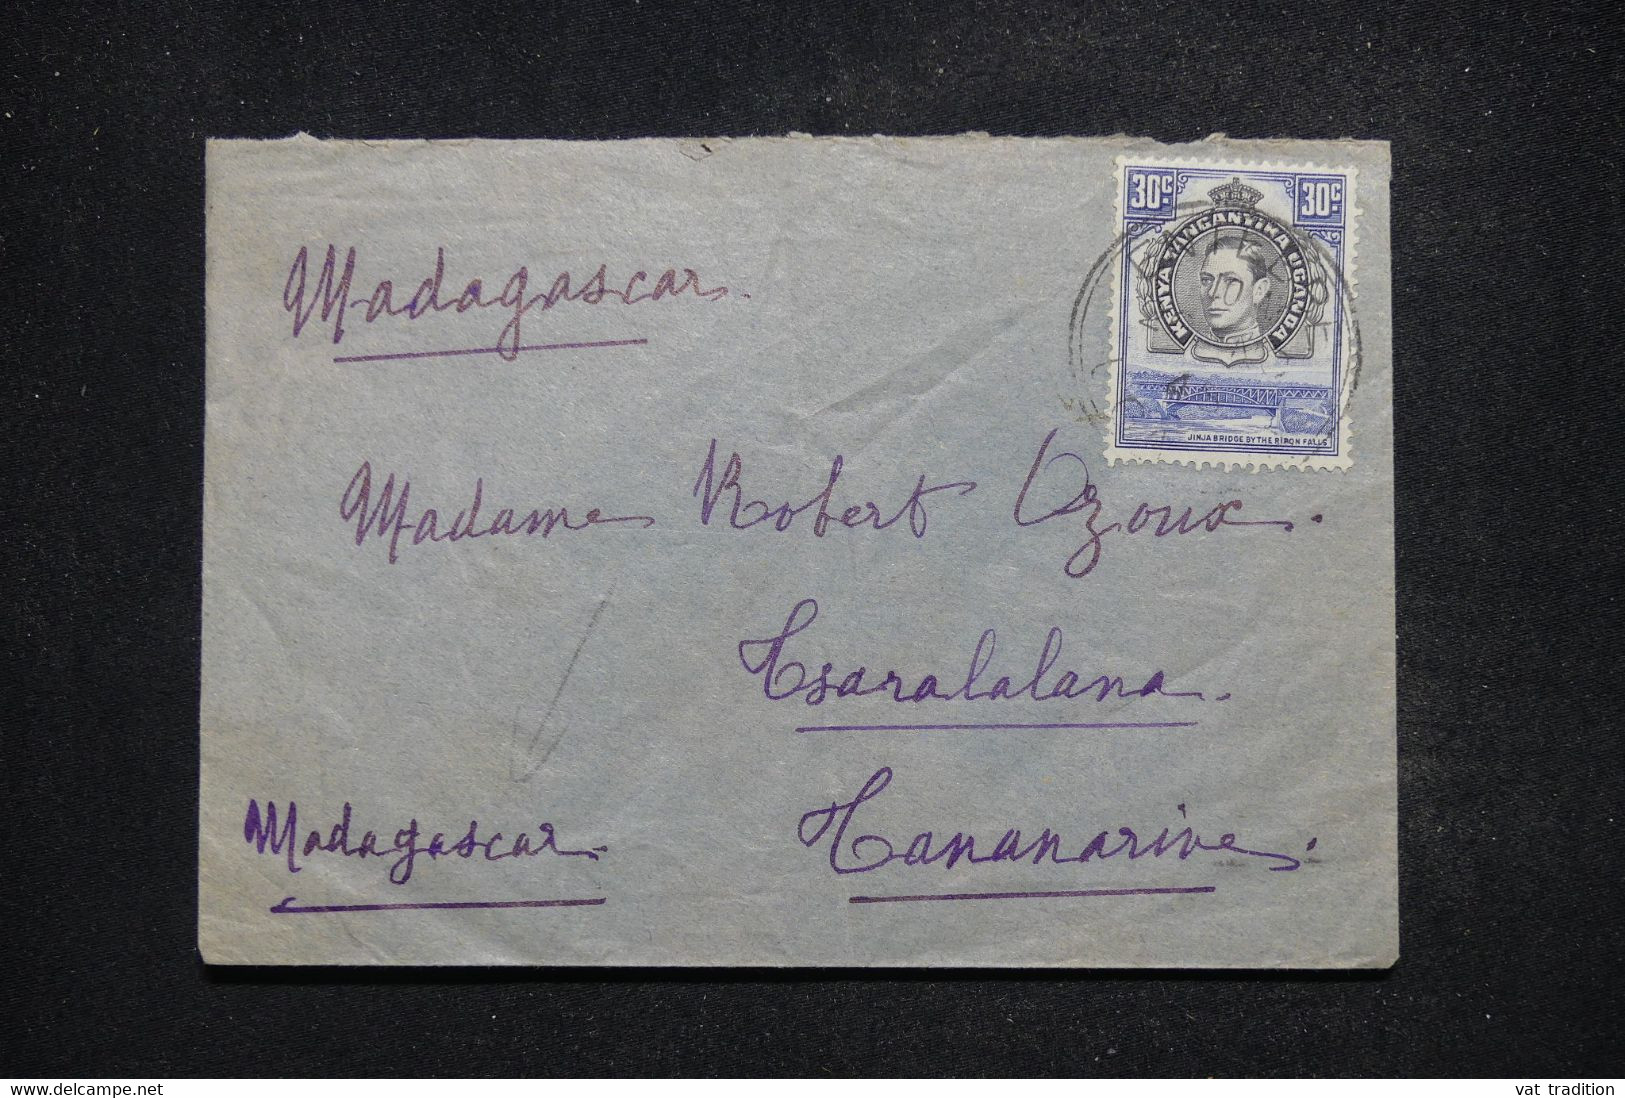 30C 30C
KENYA TANGANYIKA UGANDA
JINJA BRIDGE BY THE RIPON FALLS
Madagascar.
Madame Robert Ozoux.
Tsaralalana.
Madagascar. Tananarive.
delcampe.net vat tradition